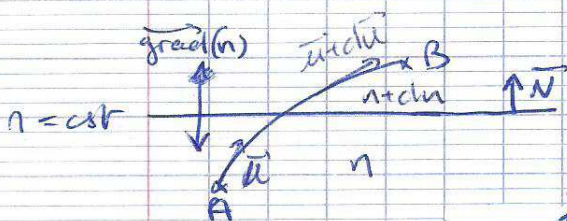 grad(n)
u+du
B
n+dn
N
n = cst
u
n
A